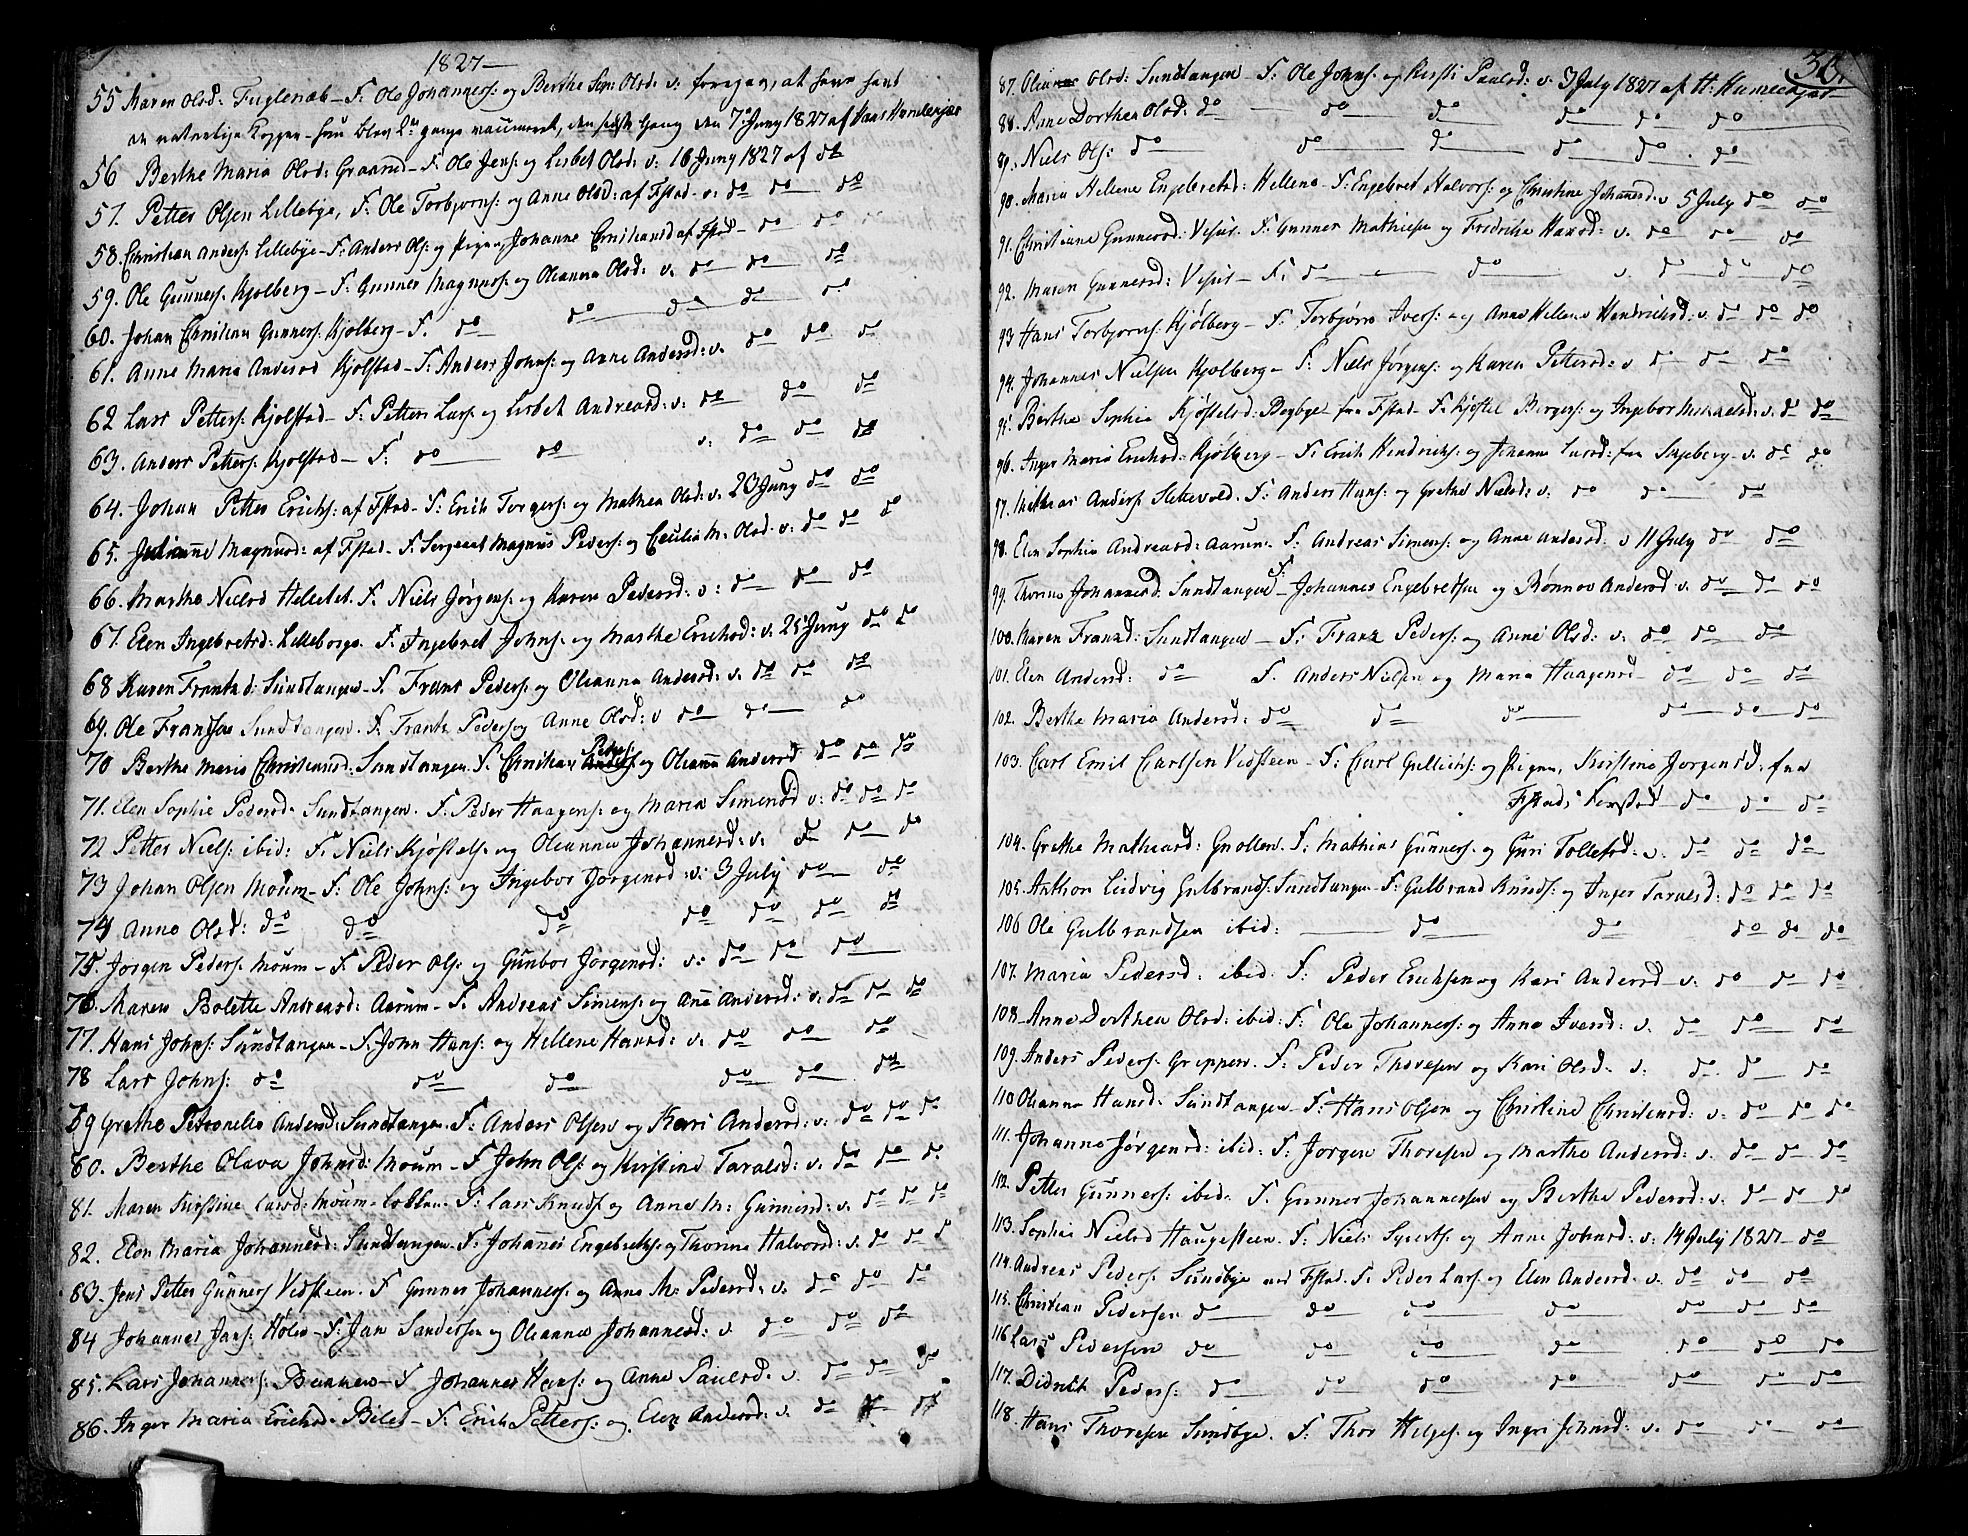 1827 —
55 Maren Olsd: Fuglenæb – F. Ole Johanness: og Berthe Sop: Olsd: v: foregav, at have havt
de naturlige Kopper – hun blev 2de gange vaccineret, den sidste Gang den 7de Juny 1827 af Hans
56 Berthe Maria Olsd: Graanæs – F. Ole Jens: og Lisbet Olsd: v: 16 Juny 1827 af do
57. Petter Olsen Lillebye, F. Ole Torbjørns: og Anne Olsd: af Fstad – v: do do do
58. Christian Anders: Lillebye – F: Anders Ols: og Pigen Johanne Christiansd af Fstad – do do do
59. Ole Gunners. Kjølberg – F: Gunner Magnus: og Oleanna Olsd: v. do do do
60. Johan Christian Gunners: Kjølberg – F. do do do do do
61. Anne Maria Andersd Kjølstad – F: Anders Johns: og Anne Andersd: v. do do do
62 Lars Petters: Kjølstad – F: Petter Lars: og Lisbet Andreasd: v: do do do
63. Anders Petters: Kjølstad – F: do do v: do do do
64. Johan Petter Erichs: af Fstad – F: Erich Torgers: og Mathea Olsd: v. 23 Juny do do
65. Julianne Magnusd: af Fstad – F. Sergeant Magnus Peders: og Cecilia M. Olsd. v: do do do
66. Marthe Nielsd Helletet. F. Niels Jørgens: og Karen Pedersd: v: do do do
67. Elen Ingebretsd: Lilleborge. F: Ingebret Johns: og Marthe Erichsd: v. 25 Juny do do
68 Karen Frantsd: Sundtangen – F. Frans Peders: og Oleanna Andersd: v. do do do
69. Ole Frandsen Sundtangen. F. Frantz Peders og Anne Olsd: v do do do
70 Berthe Maria Christiansd: Sundtangen. F. Christian Peders: og Oleanna Andersd do do do
71. Elen Sophie Pedersd. Sundtangen. F. Peder Haagens: og Maria Simensd v: do do do
72 Petter Niels: ibid: F. Niels Kjøstels: og Oleanna Johannesd: v. do do do
73 Johan Olsen Moum – F. Ole Johns: og Ingebor Jørgensd: v: 3 July do do
74 Anne Olsd: do do do do do do do
75. Jørgen Peders. Moum – F. Peder Ols: og Gunbor Jørgensd: v: do do do
76. Maren Bolette Andreasd: Aarum – F. Andreas Simens: og Ane Andersd: v: do do do
77. Hans Johns: Sundtangen – F. John Hans: og Hellene Hansd: v. do do do
78 Lars Johns: do do do do do do
79 Grethe Petronelle Andersd: Sundtangen. F. Anders Olsen og Kari Andersd: v: do do do
80. Berthe Olava Johnsd: Moum – F John Ols: og Kirstine Taralsd: v. do do do
81. Maren Kirstine Larsd: Moum-Løkken. F: Lars Knuds: og Anne M: Gunnersd: v. do do do
82. Elen Maria Johannesd: Sundtangen – F. Johannes Engebrets: og Thorine Halvorsd: v. do do do
83. Jens Petter Gunners Vidsteen. F Gunner Johanness: og Anne M: Pedersd: v. do do do
84 Johannes Jans: Holm – F: Jan Sandersen og Oleanna Johannesd: v. do do do
85. Lars Johannes: – F Johannes Hans: og Anne Paulsd. v. do do do
86. Inger Maria Erichsd. – F. Erich Petters: og Elen Andersd: v. do
36.
87. Oleane Olsd: Sundtangen – F. Ole Johns: og Kirsti Paulsd: v. 3 July 1827 af H:
88. Anne Dorthea Olsd: do do do do do do
89. Niels Ols: do do do do do do
90. Maria Hellene Engebretsd: Hellene – F. Engebret Halvors: og Christine Johannesd: v 5 July do do
91. Christiane Gunnersd: – F. Gunner Mathiesen og Fredrikke Hansd: v. do do do
92. Maren Gunnersd: – F: do do v. do do do
93 Hans Torbjørns: Kjølberg – F. Torbjørn Ivers: og Anne Hellene Hendrichsd: v. do do do
94. Johannes Nielsen Kjølberg – F. Niels Jørgens: og Karen Pettersd: v do do do
95. Berthe Sophie Kjøstelsd: Begbye fra Fstad – F. Kjøstel Børges: og Ingebor Mikkelsd: v. do do
96. Inger Maria Erichsd: Kjølberg – F. Erich Hendrichs: og Johanne Larsd: fra Skjeberg – v. do do
97. Mathias Anders: Slettevold. F. Anders Hans: og Grethe Nielsd: v. do do do
98. Elen Sophie Andreasd: Aarum. F. Andreas Simens: og Anne Andersd: v 11 July do do
99. Thorine Johannesd: Sundtangen – F. Johannes Engebretsen og Rønnov Andersd v. do do do
100. Karen Franzd: Sundtangen – F: Franz Peders: og Anne Olsd: v. do do do
101. Elen Andersd: do F. Anders Nielsen og Maria Haagensd – do do do
102. Berthe Maria Andersd: do do do do do do
103. Carl Emil Carlsen Vidsteen – F: Carl Gullichs: og Pigen, Kirstine Jørgensd: fra
Fstads Forstad – do do do
104. Grethe Mathiasd: Gnollen. F. Mathias Gunners. og Guri Tollefsd: v. do do do
105. Anthon Ludvig Gulbrands: Sundtangen – F: Gulbrand Knuds: og Inger Taralsd: do do do
106 Ole Gulbrandsen ibid: do do do do do
107. Maria Pedersd: ibid: F: Peder Erichsen og Kari Andersd – v. do do do
108. Anne Dorthea Olsd: ibid: F: Ole Johanness: og Anne Iversd: v. do do do
109. Anders Peders: Grippen. F. Peder Thoresen og Kari Olsd. v. do do do
110 Oleanna Hansd. Sundtangen – F. Hans Olsen og Christine Christensd: v. do do do
111. Johanne Jørgensd: ibid. F. Jørgen Thoresen og Marthe Andersd: v. do do do
112. Petter Gunners: ibid. F. Gunner Johannessen og Berthe Pedersd: v: do do do
113. Sophie Nielsd Haugesteen. F. Niels Syverts: og Anne Johnsd: v: 14 July 1827 – do
114. Andreas Peders: Sundbye ved Fstad. F. Peder Lars: og Elen Andersd: v. do do do
115. Christian Pedersen do do do do do do do
116 Lars Pedersen do do do do do do do
117. Didrich Peders: do do do do do do do
118. Hans Thoresen Sundbye. F. Thor Helges: og Ingri Johnsd: v. do do do